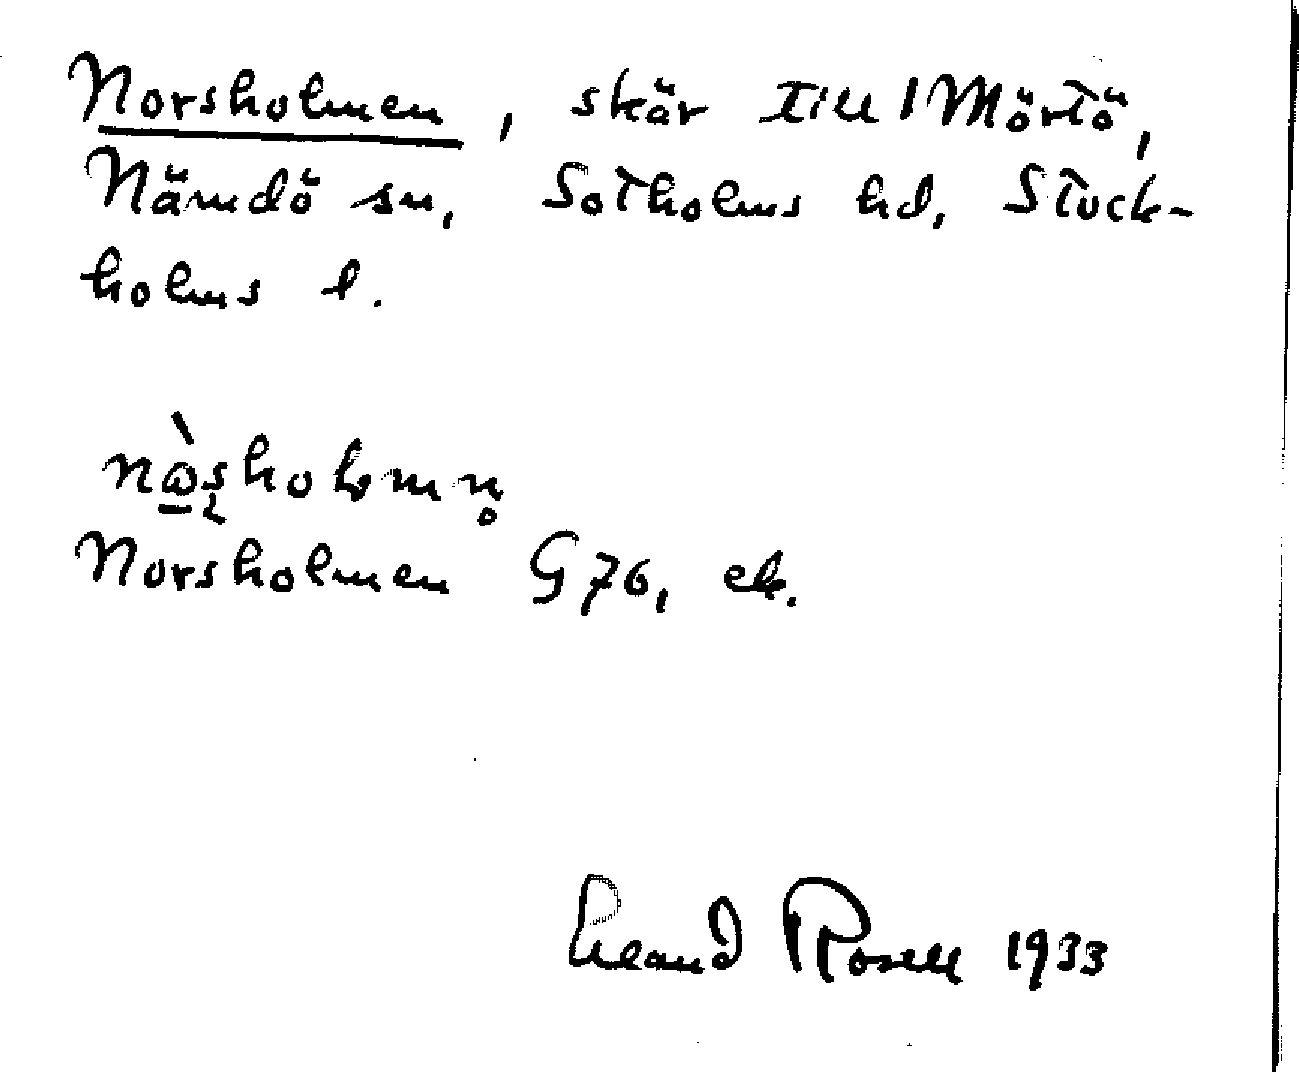 Norsholmen, skär till Mörtö,
Nämdö sn, Sotholms hd, Stock-
holms l.
Norsholmen G76, ek.
Erland Rosell 1933